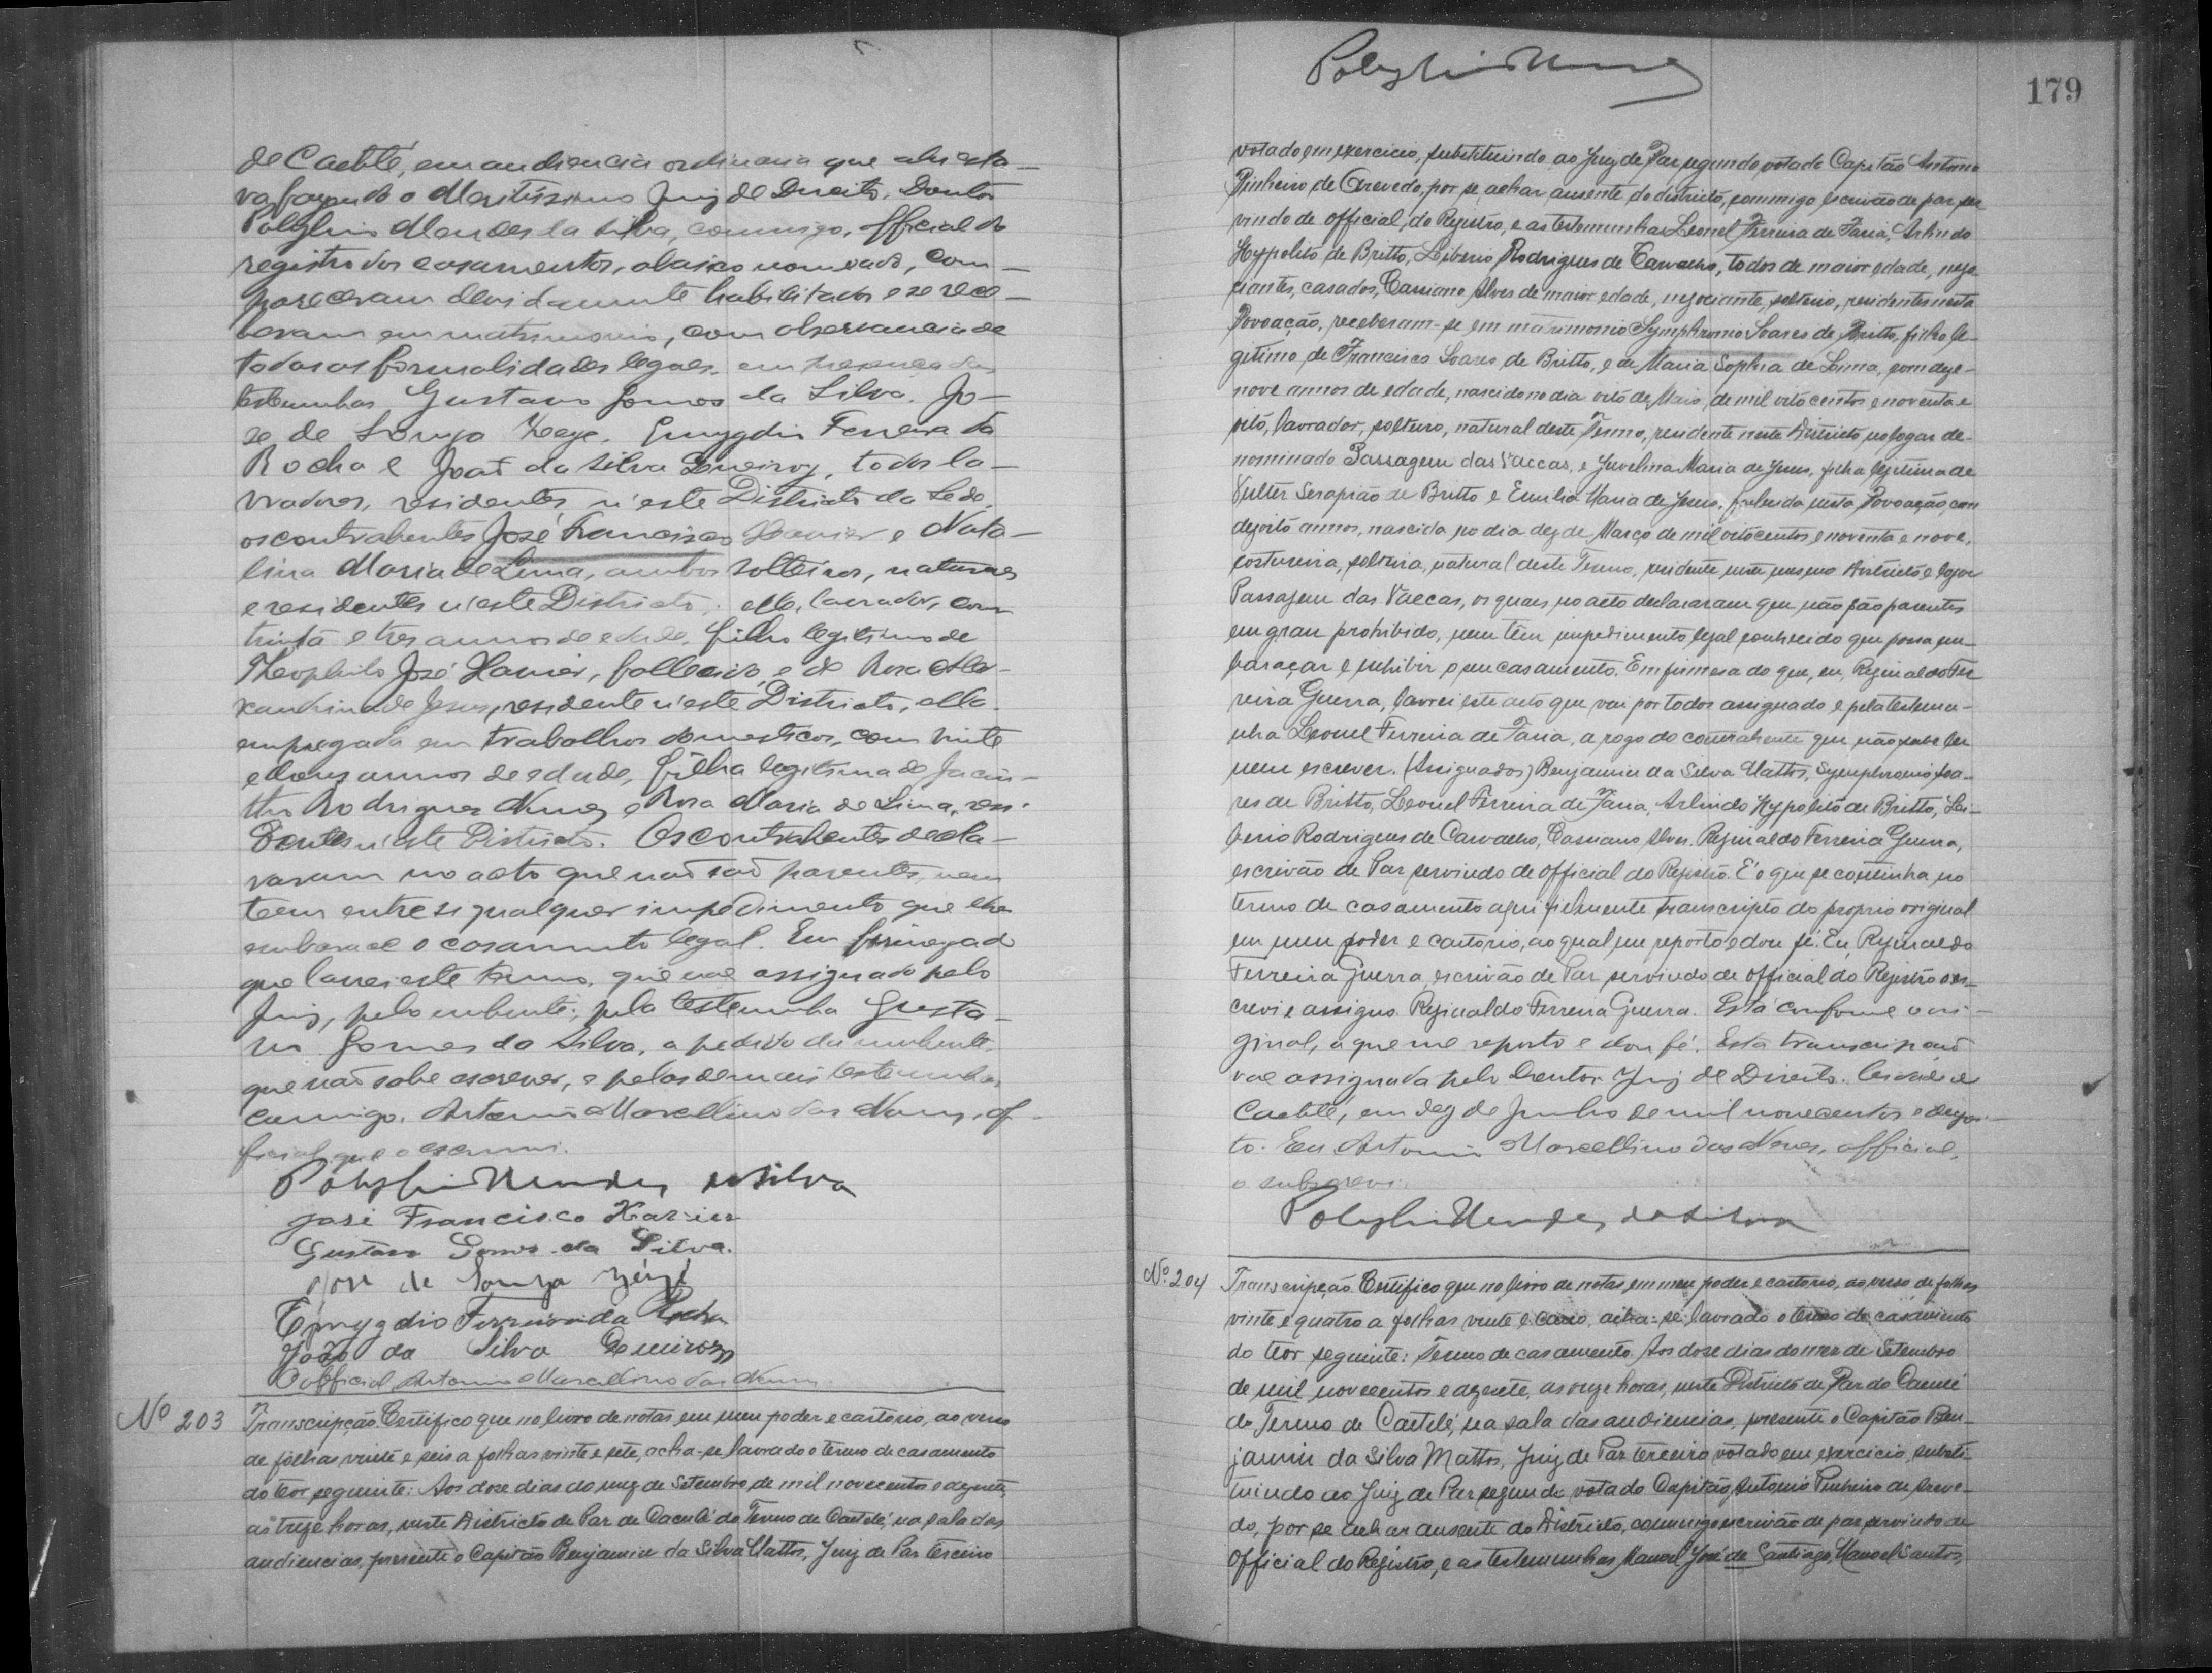 de Caetité, em audiencia ordinaria que ahi esta-
va fazendo o Meritissimo Juiz de Direito, Doutor
Polyphio Mendes da Silva, commigo, official do
registro dos casamentos, abaixo nomeado, com-
pareceram devidamente habilitados e se rece-
beram em matrimonio, com observancia de
todas as formalidades legaes, em presença das
testemunhas Gustavo Gomes da Silva, Jo-
se de Souza, Emygdio Ferreira da
Rocha e João da Silva, todos la-
vradores, residentes n'este Districto da Séde,
os contrahentes José Francisco Xavier e Nata-
lina Maria de Lima, ambos solteiros, naturaes
e residentes n'este Districto; elle, lavrador, com
trinta e tres annos de edade, filho legitimo de
Theophilo José Xavier, fallecido, e de Rosa Ale-
xandrina de Jesus, residente n'este Districto, ella
empregada em trabalhos domesticos, com vinte
e dous annos de edade, filha legitima de Jacin-
tho Rodrigues Nunes e Rosa Maria de Lima, resi-
dentes n'este Districto. Os contrahentes decla-
raram no acto que não são parentes, nem
teem entre si qualquer impedimento que lhes
embarace o casamento legal. Em firmeza do
que lavrei este termo, que vae assignado pelo
Juiz, pelo nubente, pela testemunha Gusta-
vo Gomes da Silva, a pedido da nubente,
que não sabe escrever, e pelas demais testemunhas,
commigo, Antonio Marcellino das Neves, of-
ficial que o escrevi.
Mendes da Silva
José Francisco Xavier
Gustavo Gomes da Silva.
José de Souza
Emygdio Ferreira da Rocha
João da Silva
O official, Antonio Marcellino das Neves
Nº 203 Transcripção. Certifico que no livro de notas em meu poder e cartorio, ao verso
de folhas vinte e seis a folhas vinte e sete, acha-se lavrado o termo de casamento
do teor seguinte: Aos dose dias do mez de Setembro de mil novecentos e dezesete,
as treze horas, neste Districto de Paz de Caculé do Termo de Caetité, na sala das
audiencias, presente o Capitão Benjamin da Silva Mattos, Juiz de Paz terceiro
179
votado em exercicio, substituindo ao Juiz de Paz segundo votado Capitão Antonio
Pinheiro de Azevedo, por se achar ausente do districto, commigo escrivão de paz ser
vindo de official do Registro, e as testemunhas Leonel Ferreira de Faria, Arlindo
Hyppolito de Britto, Liberio Rodrigues de Carvalho, todos de maior edade, nego
ciantes, casados, Cassiano Alves de maior edade, negociante, solteiro, residentes nesta
Povoação, receberam-se em matrimonio Symphronio Soares de Britto, filho le-
gitimo de Francisco Soares de Britto, e de Maria Sophia de Lima, com deze-
nove annos de edade, nascido no dia oito de Maio de mil oito centos e noventa e
oito, lavrador, solteiro, natural deste Termo, residente neste Districto no logar de-
nominado Passagem das Vaccas, e Juvelina Maria de Jesus, filha legitima de
Serapião de Britto e Emilia Maria de Jesus, nesta Povoação, com
dezoito annos, nascida no dia dez de Março de mil oitocentos e noventa e nove,
costureira, solteira, natural deste Termo, residente neste mesmo Districto e logar
Passagem das Vaccas, os quaes no acto declararam que não são parentes
em grau prohibido, nem têm impedimento legal conhecido que possa em-
baraçar e inhibir o seu casamento. Em firmesa do que, eu, Reginaldo Fer
reira Guerra, lavrei este acto que vai por todos assignado e pela testemu-
nha Leonel Ferreira de Faria, a rogo do contrahente que não sabe ler
nem escrever. (Assignados) Benjamin da Silva Mattos, Symphronio Soa-
res de Britto, Leonel Ferreira de Faria, Arlindo Hyppolito de Britto, Li-
berio Rodrigues de Carvalho, Cassiano Alves. Reginaldo Ferreira Guerra,
escrivão de Paz servindo de official do Registro. É o que se continha no
termo de casamento aqui fielmente transcripto do proprio original
em meu poder e cartorio, ao qual me reporto e dou fé. Eu, Reginaldo
Ferreira Guerra, escrivão de Paz servindo de official do Registro o es-
crevi e assigno. Reginaldo Ferreira Guerra. Está conforme o ori-
ginal, a que me reporto e dou fé. Esta transcripção
vae assignada pelo Doutor Juiz de Direito. Cidade de
Caetité, em dez de Junho de mil novecentos e dezoi-
to. Eu Antonio Marcellino das Neves, official,
o subscrevi.
Mendes da Silva
Nº 204 Transcripção. Certifico que no livro de notas em meu poder e cartorio, ao verso de folhas
vinte e quatro a folhas vinte e cinco, acha-se lavrado o termo de casamento
do teor seguinte: Termo de casamento. Aos dose dias do mez de Setembro
de mil novecentos e dezesete, as onze horas, neste Districto de Paz do Caculé
do Termo de Caetité, na sala das audiencias, presente o Capitão Ben-
jamin da Silva Mattos, Juiz de Paz terceiro votado em exercicio, substi-
tuindo ao Juiz de Paz segundo votado Capitão Antonio Pinheiro de Azeve-
do, por se achar ausente do Districto, commigo escrivão de paz servindo de
Official do Registro, e as testemunhas Manoel José de Santiago, Manoel Santos,